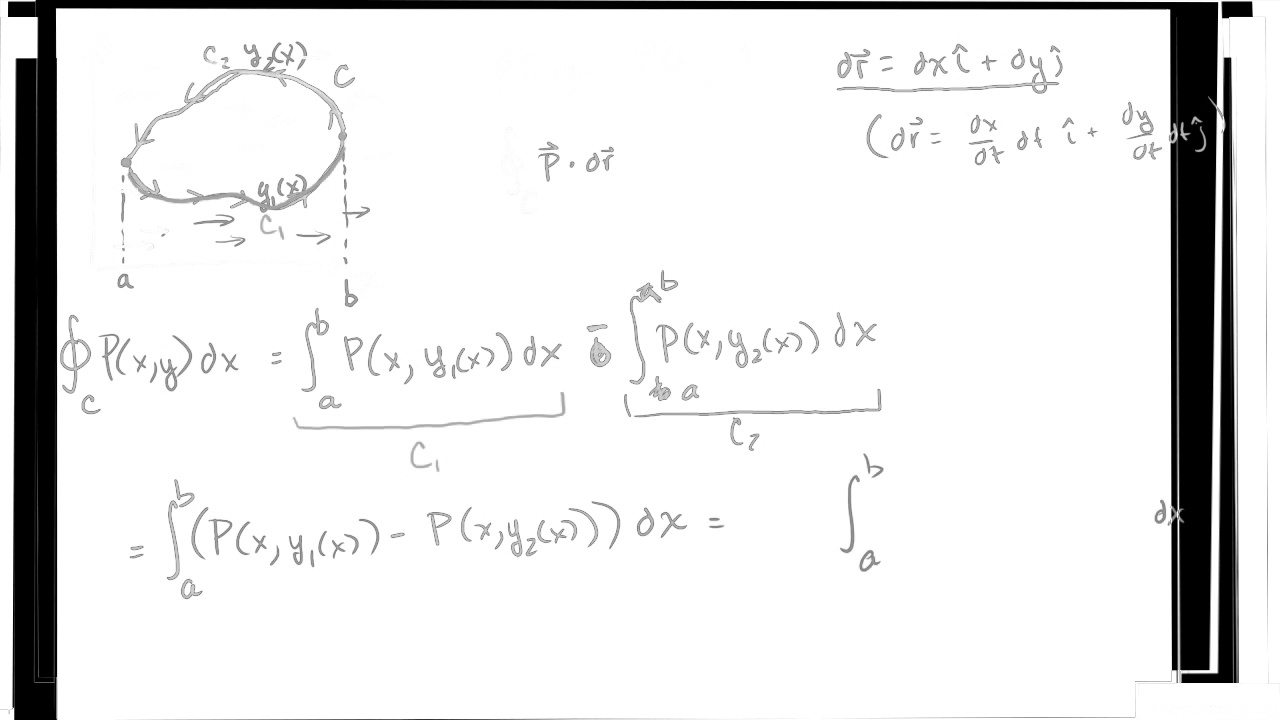 C₂ y₂(x)
C
y₁(x)
C₁
a
b
P⃗ · dr⃗
dr⃗ = dx î + dy ĵ
(dr⃗ = dx/dt dt î + dy/dt dt ĵ)
∮_C P(x,y) dx = ∫_a^b P(x, y₁(x)) dx - ∫_a^b P(x, y₂(x)) dx
C₁
C₂
= ∫_a^b (P(x, y₁(x)) - P(x, y₂(x))) dx = ∫_a^b dx